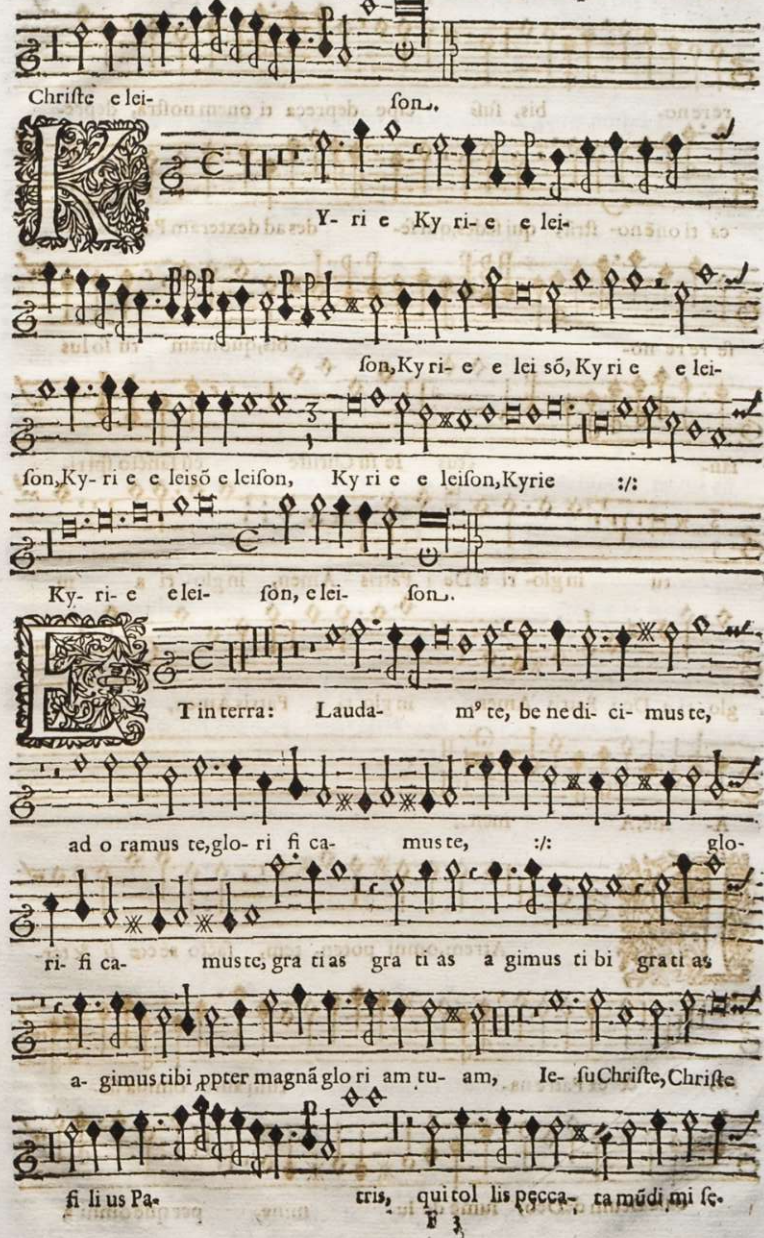 Chriſte e lei- ſon.
K
Y- ri e Ky ri- e e lei-
ſon, Ky ri- e e lei sõ, Ky ri e e lei-
ſon, Ky- ri e e leisõ e leiſon, Ky ri e e leiſon, Kyrie :/:
Ky- ri- e e lei- ſon, e lei- ſon.
E
T in terra: Lauda- mꝰ te, be ne di- ci- mus te,
ad o ramus te, glo- ri fi ca- mus te, :/: glo-
ri- fi ca- mus te, gra ti as gra ti as a gimus ti bi gra ti as
a- gimus tibi ꝓpter magnã glo ri am tu- am, Ie- ſu Chriſte, Chriſte
fi li us Pa- tris, qui tol lis pecca- ta mũdi mi ſe-
F 3